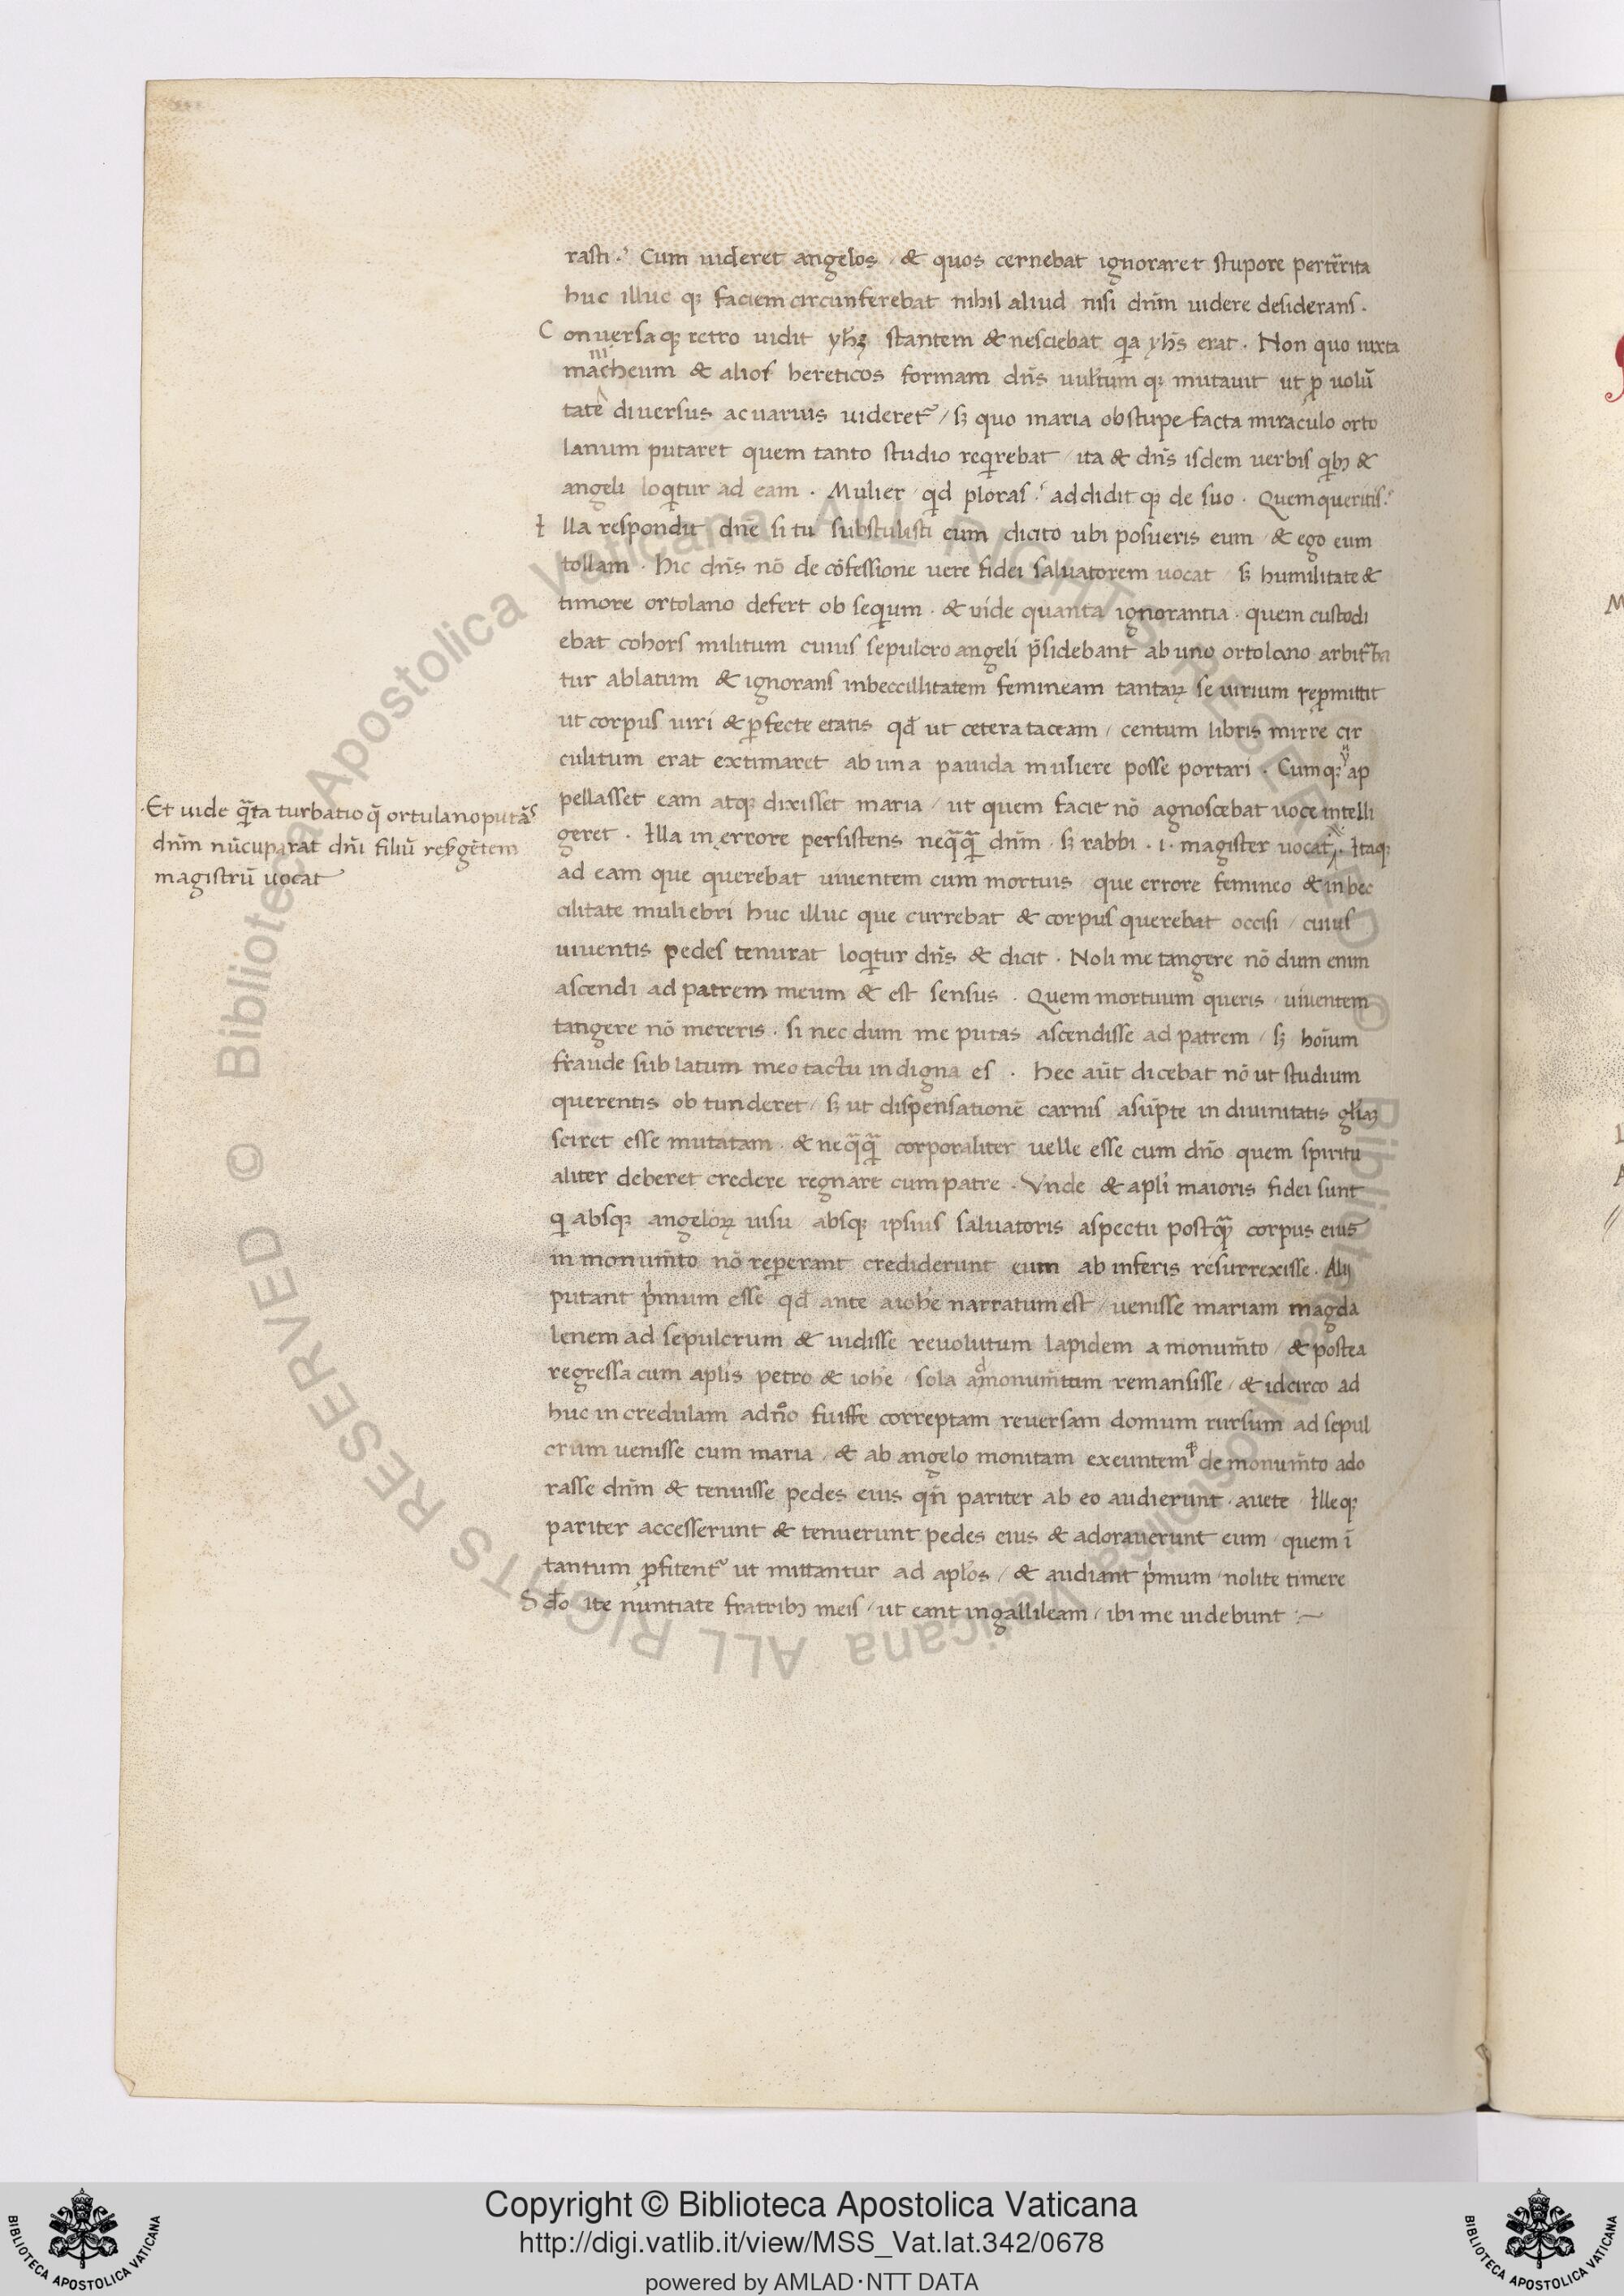 rasti.ˀ Cum uideret angelos / & quos cernebat ignoraret stupore pertẽrita
huc illuc qꝫ faciem circunferebat nihil aliud nisi dñm uidere desiderans .
Conuersa qꝫ retro uidit yhꝫ stantem & nesciebat qͥa yhs̃ erat . Non quo iuxta
macheum & alios hereticos formam dñs uultum qꝫ mutauit ut ꝓ uolũ
tate diuersus ac uarius uideret᷑ / sꝫ quo maria obstupefacta miraculo orto
lanum putaret quem tanto studio reqͥrebat / ita & dñs isdem uerbis qͥbꝫ &
angeli loqͥtur ad eam . Mulier qͥd ploras.ˀ addidit qꝫ de suo . Quem queritis.ˀ
Illa respondit dñe si tu substulisti eum dicito ubi posueris eum / & ego eum
tollam . Hic dñs nõ de cõfessione uere fidei saluatorem uocat / sꝫ humilitate &
timore ortolano defert obseqͥum . & uide quanta ignorantia . quem custodi
ebat cohors militum cuius sepulcro angeli p̃sidebant ab uno ortolano arbitͣba
tur ablatum & ignorans inbeccillitatem femineam tantaꝝ se uirium repͥmittit
ut corpus uiri & ꝑfecte etatis qđ ut cetera taceam / centum libris mirre cir
culitum erat extimaret ab una pauida muliere posse portari . Cumqꝫ y ap
pellasset eam atqꝫ dixisset maria / ut quem facie nõ agnoscebat uoce intelli
geret . Illa in errore persistens neqͣqͣ dñm . sꝫ rabbi . i . magister uocat . Itaqꝫ
ad eam que querebat uiuentem cum mortuis / que errore femineo & inbec
cilitate muliebri huc illuc que currebat & corpus querebat occisi / cuius
uiuentis pedes tenuerat loqͥtur dñs & dicit . Noli me tangere nõ dum enim
ascendi ad patrem meum & est sensus . Quem mortuum queris / uiuentem
tangere nõ mereris . si nec dum me putas ascendisse ad patrem / sꝫ hoĩum
fraude sublatum meo tactu indigna es . Hec aũt dicebat nõ ut studium
querentis obtunderet / sꝫ ut dispensationẽ carnis asũpte in diuinitatis gl̃iaꝫ
sciret esse mutatam . & neqͣqͣ corporaliter uelle esse cum dño quem spiritu
aliter deberet credere regnare cum patre . Vnde & apl̃i maioris fidei sunt
qͥ absqꝫ angeloꝝ uisu / absqꝫ ipsius saluatoris aspectu postqͣ corpus eius
in monum̃to nõ reꝑerant crediderunt eum ab inferis resurrexisse . Alij
putant pͥmum esse qđ ante a iohẽ narratum est / uenisse mariam magda
lenem ad sepulcrum & uidisse reuolutum lapidem a monum̃to / & postea
regressa cum apl̃is petro & iohẽ / sola ad monum̃tum remansisse / & idcirco ad
huc incredulam a dño fuisse correptam reuersam domum rursum ad sepul
crum uenisse cum maria / & ab angelo monitam exeuntem qͥ de monum̃to ado
rasse dñm & tenuisse pedes eius qñ pariter ab eo audierunt . auete Illeqꝫ
pariter accesserunt & tenuerunt pedes eius & adorauerunt eum / quem ĩ
tantum ꝓfitent᷑ ut mittantur ad apl̃os / & audiant pͥmum / nolite timere
Scđo ite nuntiate fratribꝫ meis / ut eant in gallileam / ibi me uidebunt :~
·Et uide qͣta turbatio q̃ ortulano putãs
dñm nũcuparat dñi filiũ resᷣgẽtem
magistrũ uocat
Copyright © Biblioteca Apostolica Vaticana
http://digi.vatlib.it/view/MSS_Vat.lat.342/0678
powered by AMLAD·NTT DATA
BIBLIOTECA APOSTOLICA VATICANA
BIBLIOTECA APOSTOLICA VATICANA
© Biblioteca Apostolica Vaticana ALL RIGHTS RESERVED
© Biblioteca Apostolica Vaticana ALL RIGHTS RESERVED